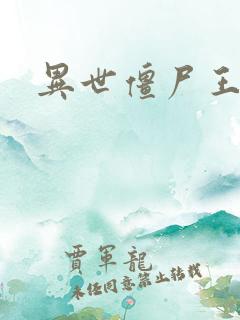 異世僵尸王
賈軍龍
未经同意禁止转载